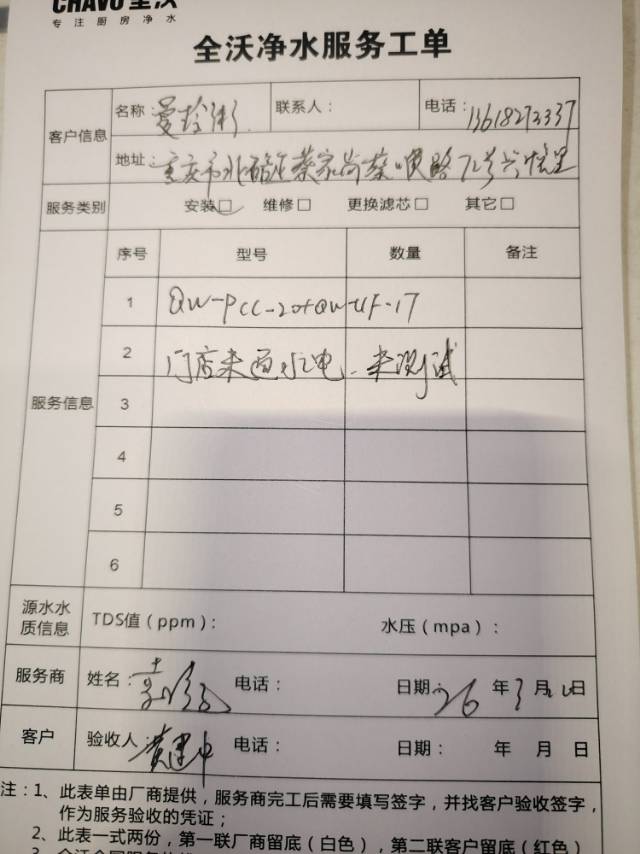 CHAVO全沃
专注厨房净水
全沃净水服务工单
客户信息
名称: 曼玲粥 联系人: 电话: 13618273337
地址: 重庆市北碚区蔡家岗蔡 路72号
服务类别 安装□ 维修□ 更换滤芯□ 其它□
服务信息
序号 型号 数量 备注
1 QW-PCC-20+QW-UF-17
2 门店未通水电、未测试
3
4
5
6
源水水质信息 TDS值(ppm): 水压(mpa):
服务商 姓名: 电话: 日期: 26年3月 日
客户 验收人: 黄建中 电话: 日期: 年 月 日
注: 1、此表单由厂商提供,服务商完工后需要填写签字,并找客户验收签字,
作为服务验收的凭证;
2、此表一式两份,第一联厂商留底(白色),第二联客户留底(红色)